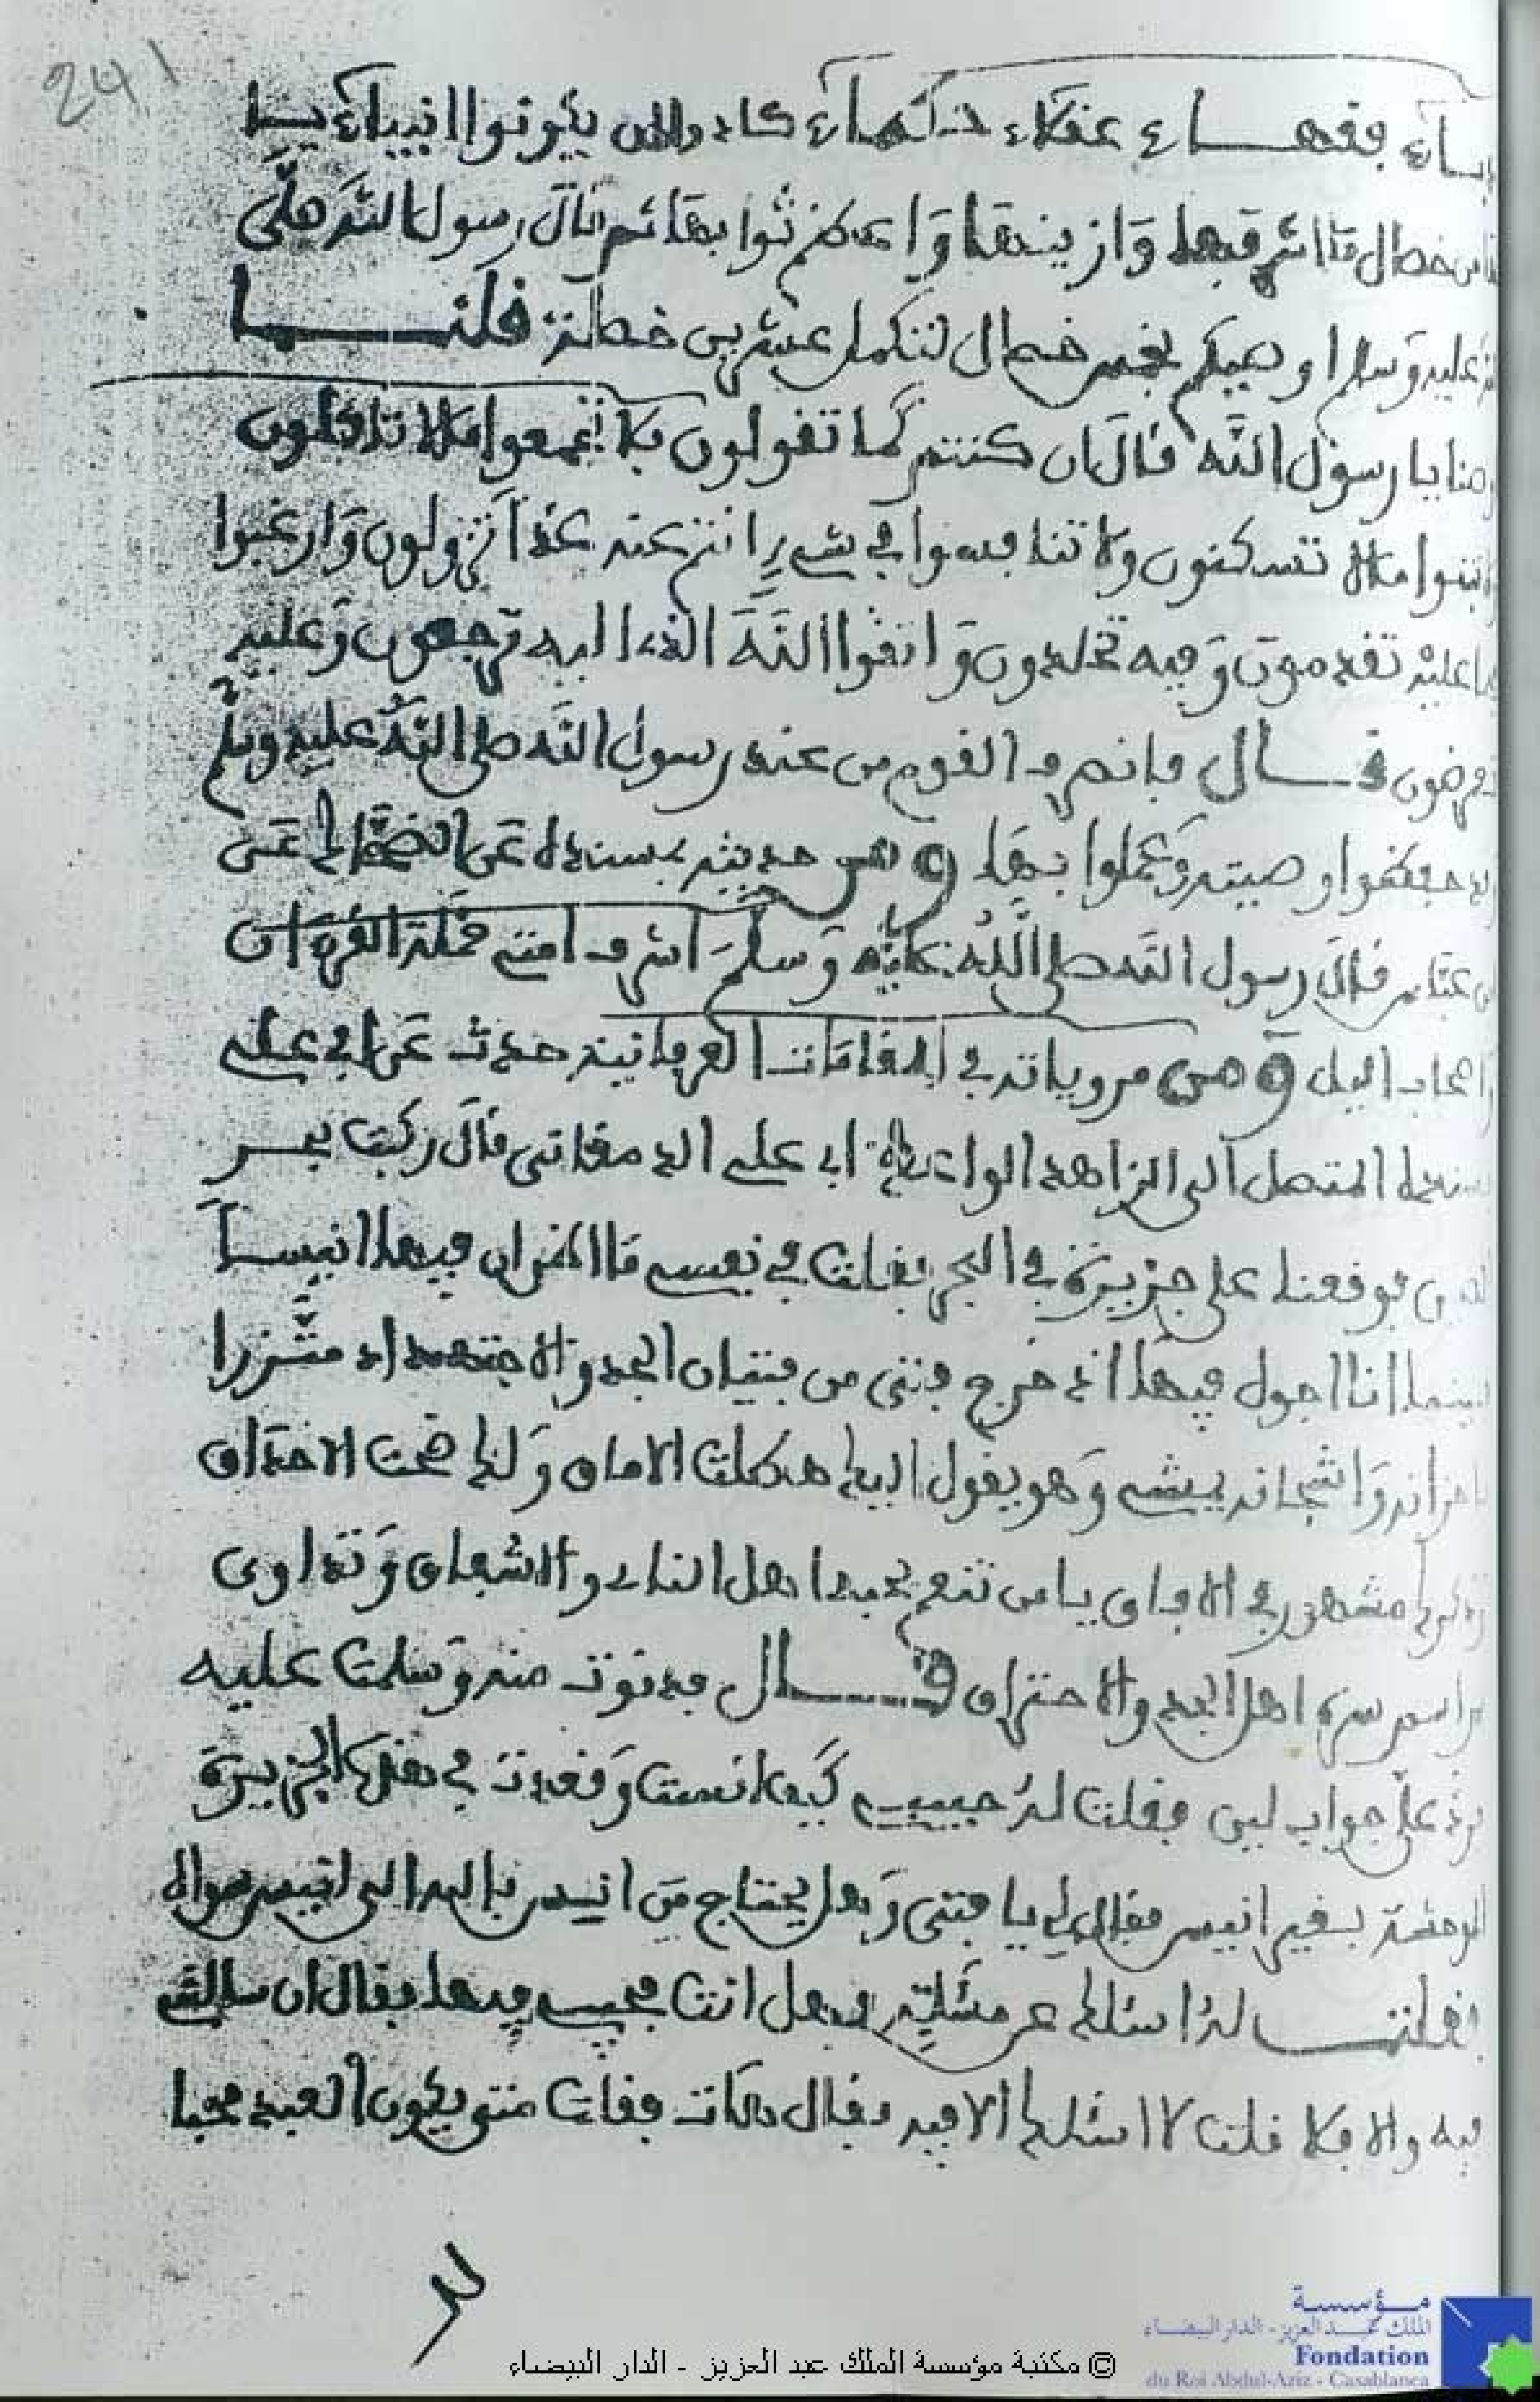 241
فقهاء عقلاء حكماء كادوا ان يكونوا انبياء يا
خصال ما اشرفها وازينها واعظم ثوابها ثم قال رسول الله صلى
الله عليه وسلم اوصيكم بخمس خصال لتكمل عشرين خصلة قلنا
يا رسول الله قال ان كنتم كما تقولون فلا تجمعوا ما لا تاكلون
ولا تبنوا ما لا تسكنون ولا تنافسوا في شيء انتم عنه غدا تزولون وارغبوا
عليه تقدمون وفيه تخلدون واتقوا الله الذي اليه ترجعون وعليه
تعرضون قال فانصرف القوم من عند رسول الله صلى الله عليه وسلم
حفظوا وصيته وعملوا بها ومن حديثه بسنده عن الضحاك عن
ابن عباس قال رسول الله صلى الله عليه وسلم اشرف امتي حملة القرءان
واصحاب اليل ومن مروياته في المقامات العرفانية حدث عن ابي علي
بسنده المتصل الى الزاهد الواعظ ابي علي الدمقاني قال ركبت بحر
فوقعنا على جزيرة في البحر فقلت في نفسي ما اظن ان فيها انيسا
بينما انا اجول فيها اذ خرج فتى من فتيان الجد والاجتهاد متزرا
باحزانه واشجانه يمشي وهو يقول اليك هطلت الاماق ولك ضجت الاحداق
مشهور في الافاق يا من تنعم بحبه اهل النار والاشفاق وتداوى
اهل الجد والاحتراق قال فدنوت منه وسلمت عليه
فرد علي جواب لين فقلت له حبيبي كيف انست وقعدت في هذه الجزيرة
الوحشة بغير انيس فقال لي يا فتى وهل يحتاج من انيس بالله الى انيس سواه
فقلت له اسئلك عن مسئلة فهل انت مجيب فيها فقال ان سالت
فيه والا فلا قلت لا اسئلك الا فيه فقال هات فقلت متى يكون العبد محبا
مؤسسة
الملك عبد العزيز - الدار البيضاء
Fondation
du Roi Abdul-Aziz - Casablanca
© مكتبة مؤسسة الملك عبد العزيز - الدار البيضاء